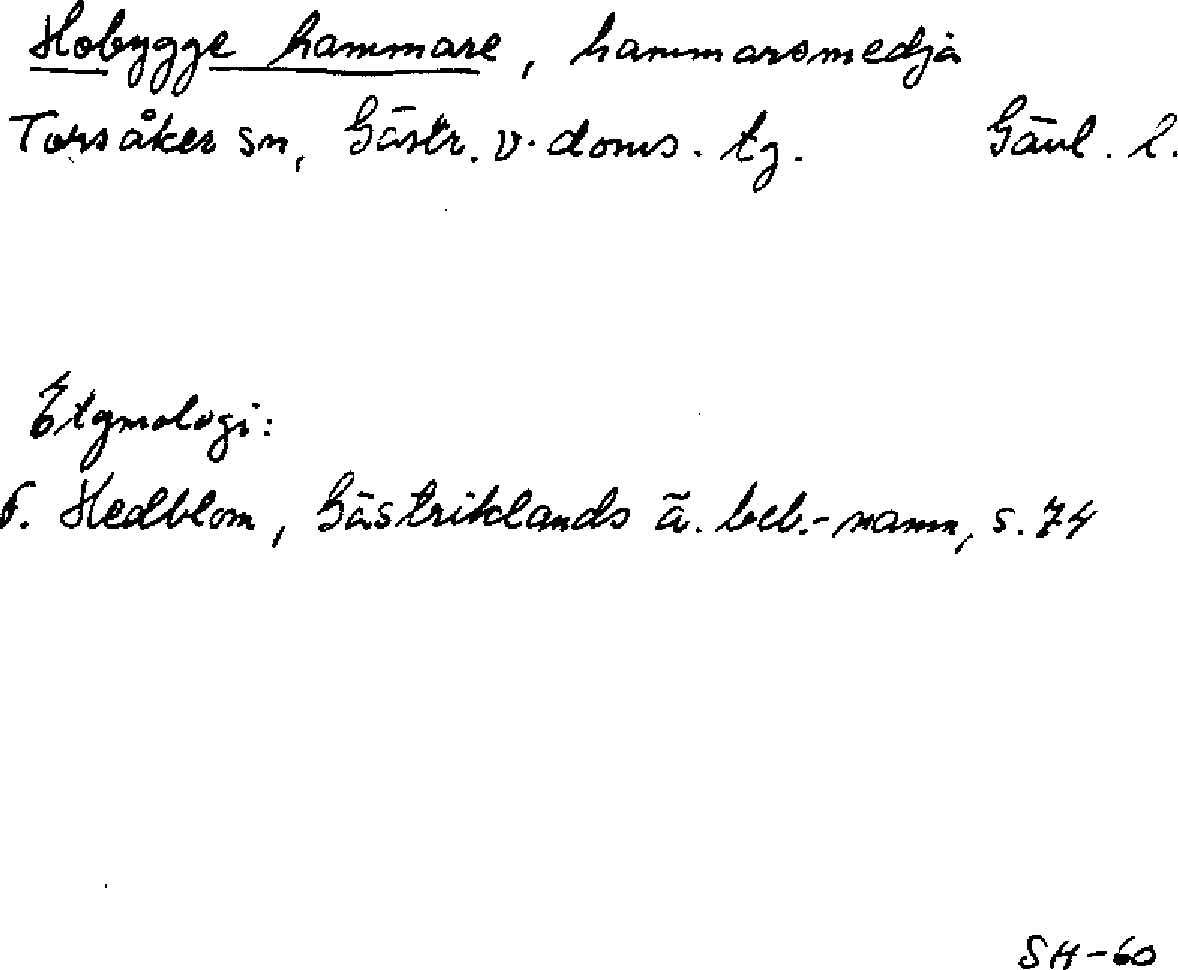 Hobygge hammare, hammarsmedja
Torsåker sn, Gästr. v. doms. tg. Gävl. l.
Etymologi:
F. Hedblom, Gästriklands ä. beb.-namn, s. 74
SH-60